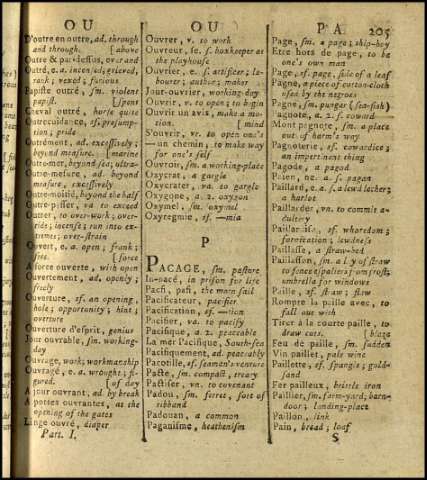 O U
O U
P A
205
D'outre en outre, ad. through
and through. [above
Outre & par-dessus, over and
Outré, e. a. incensed; grieved,
rank; vexed; furious
Papiste outré, sm. violent
papist. [spent
Cheval outré, horse quite
Outrecuidance, sf. presump-
tion; pride
Outrément, ad. excessively;
beyond measure. [marine
Outre-mer, beyond sea; ultra-
Outre-mesure, ad. beyond
measure, excessively
Outre-moitié, beyond the half
Outre-passer, va to exceed
Outrer, to over-work; over-
ride; incense; run into ex-
tremes; over-strain
Ouvert, e. a. open; frank;
fire. [force
A force ouverte, with open
Ouvertement, ad, openly;
freely
Ouverture, sf. an opening,
hole; opportunity; hint;
overture
Ouverture d'esprit, genius
Jour ouvrable, sm. working-
day
Ouvrage, work; workmanship
Ouvragé, e a. wrought; fi-
gured. [of day
A jour ouvrant, ad. by break
A portes ouvrantes, at the
opening of the gates
Linge ouvré, diaper
Part. I.
Ouvrer, v. to work
Ouvreur, se. s. boxkeeper at
the playhouse
Ouvrier, e. s. artificer; la-
bourer; author; maker
Jour-ouvrier, working-day
Ouvrir, v. to open; to begin
Ouvrir un avis, make a mo-
tion. [mind
S'ouvrir, v. to open one's
— un chemin, to make way
for one's self
Ouvroir, sm. a working-place
Oxycrat, a gargle
Oxycrater, va to gargle
Oxygone, a 2. oxygon
Oxymel, sm. oxymel
Oxyregmie, sf. —mia
P
PACAGE, sm. pasture
In-pacé, in prison for life
Pacfi, pafi, the main sail
Pacificateur, pacifier
Pacification, sf. —tion
Pacifier, va to pacify
Pacifique, a 2. peaceable
La mer Pacifique, South-sea
Pacifiquement, ad peaceably
Pacotille, sf. seamen's venture
Pacte, sm. compact, treaty
Pactiser, vn. to covenant
Padou, sm. ferret, sort of
ribband
Padouan, a common
Paganisme, heathenism
Page, sm. a page; ship-boy
Etre hors de page, to be
one's own man
Page, sf. page, side of a leaf
Pagne, a piece of cotton-cloth
used by the negroes
Pagne, sm. pungar (sea-fish)
Pagnote, a. 2. s. coward
Mont pagnote, sm. a place
out of harm's way
Pagnoterie, sf. cowardice;
an impertinent thing
Pagode, a pagod
Paien, ne. a. s. pagan
Paillard, e. a. s. a lewd lecher;
a harlot
Paillarder, vn. to commit a-
dultery
Paillardise, sf. whoredom;
fornication; lewdness
Paillasse, a straw-bed
Paillasson, sm. a lay of straw
to fence espaliers from frost;
umbrella for windows
Paille, sf. straw; flaw
Rompre la paille avec, to
fall out with
Tirer à la courte paille, to
draw cuts. [blaze
Feu de paille, sm. sudden
Vin paillet, pale wine
Paillette, sf. spangle; gold-
sand
Fer pailleux, brittle iron
Paillier, sm. farm-yard; barn-
door; landing-place
Paillon, link
Pain, bread; loaf
S